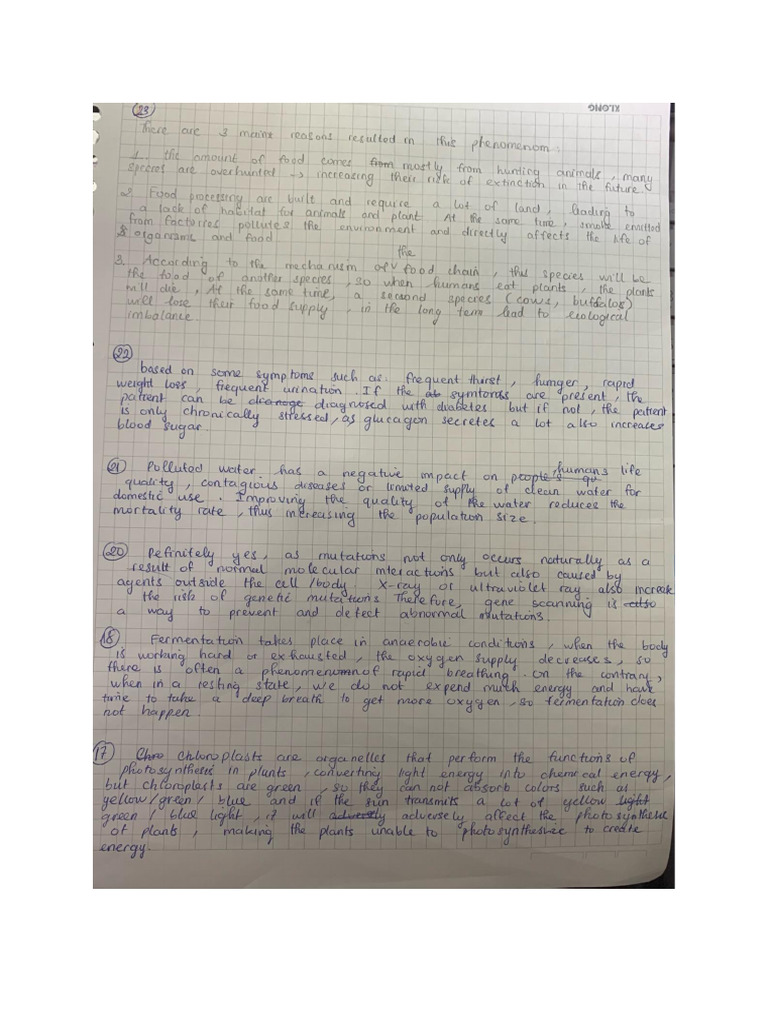 XLONG
23
There are 3 mainx reasons resulted in this phenomenom:
1. the amount of food comes from mostly from hunting animals, many
species are overhunted → increasing their risk of extinction in the future.
2. Food processing are built and require a lot of land, leading to
a lack of habitat for animals and plant. At the same time, smoke emitted
from factorires pollutes the environment and directly affects the life of
organisms and food
the
3. According to the mechanism of v food chain, this species will be
the food of another species, so when humans eat plants, the plants
will die, At the same time, a second species (cows, buffalos)
will lose their food supply, in the long term lead to ecological
imbalance.
22
based on some symptoms such as: frequent thirst, hunger, rapid
weight loss, frequent urination. If the ab symtoms are present, the
patient can be dianoge diagnosed with diabetes but if not, the patient
is only chronically stressed, as glucagon secretes a lot also increases
blood sugar.
21 Polluted water has a negative impact on people's qu humans life
quality, contagious diseases or limited supply of clean water for
domestic use. Improving the quality of the water reduces the
mortality rate, thus increasing the population size.
20 Definitely yes, as mutations not only occurs naturally as a
result of normal molecular interactions but also caused by
agents outside the cell/body. X-ray or ultraviolet ray also increak
the risk of genetic mutations Therefore, gene scanning is also
a way to prevent and detect abnormal mutations.
18 Fermentation takes place in anaerobic conditions, when the body
is working hard or exhausted, the oxygen supply decreases, so
there is often a phenomenon of rapid breathing. On the contrary,
when in a resting state, we do not expend much energy and have
time to take a deep breath to get more oxygen, so fermentation does
not happen.
17 Chro Chloroplasts are organelles that perform the functions of
photosynthesis in plants, converting light energy into chemical energy,
but chloroplasts are green, so they can not absorb colors such as
yellow/green/blue and if the sun transmits a lot of yellow light
green/blue light, it will adversely adversely affect the photosynthesis
of plants, making the plants unable to photosynthesize to create
energy.